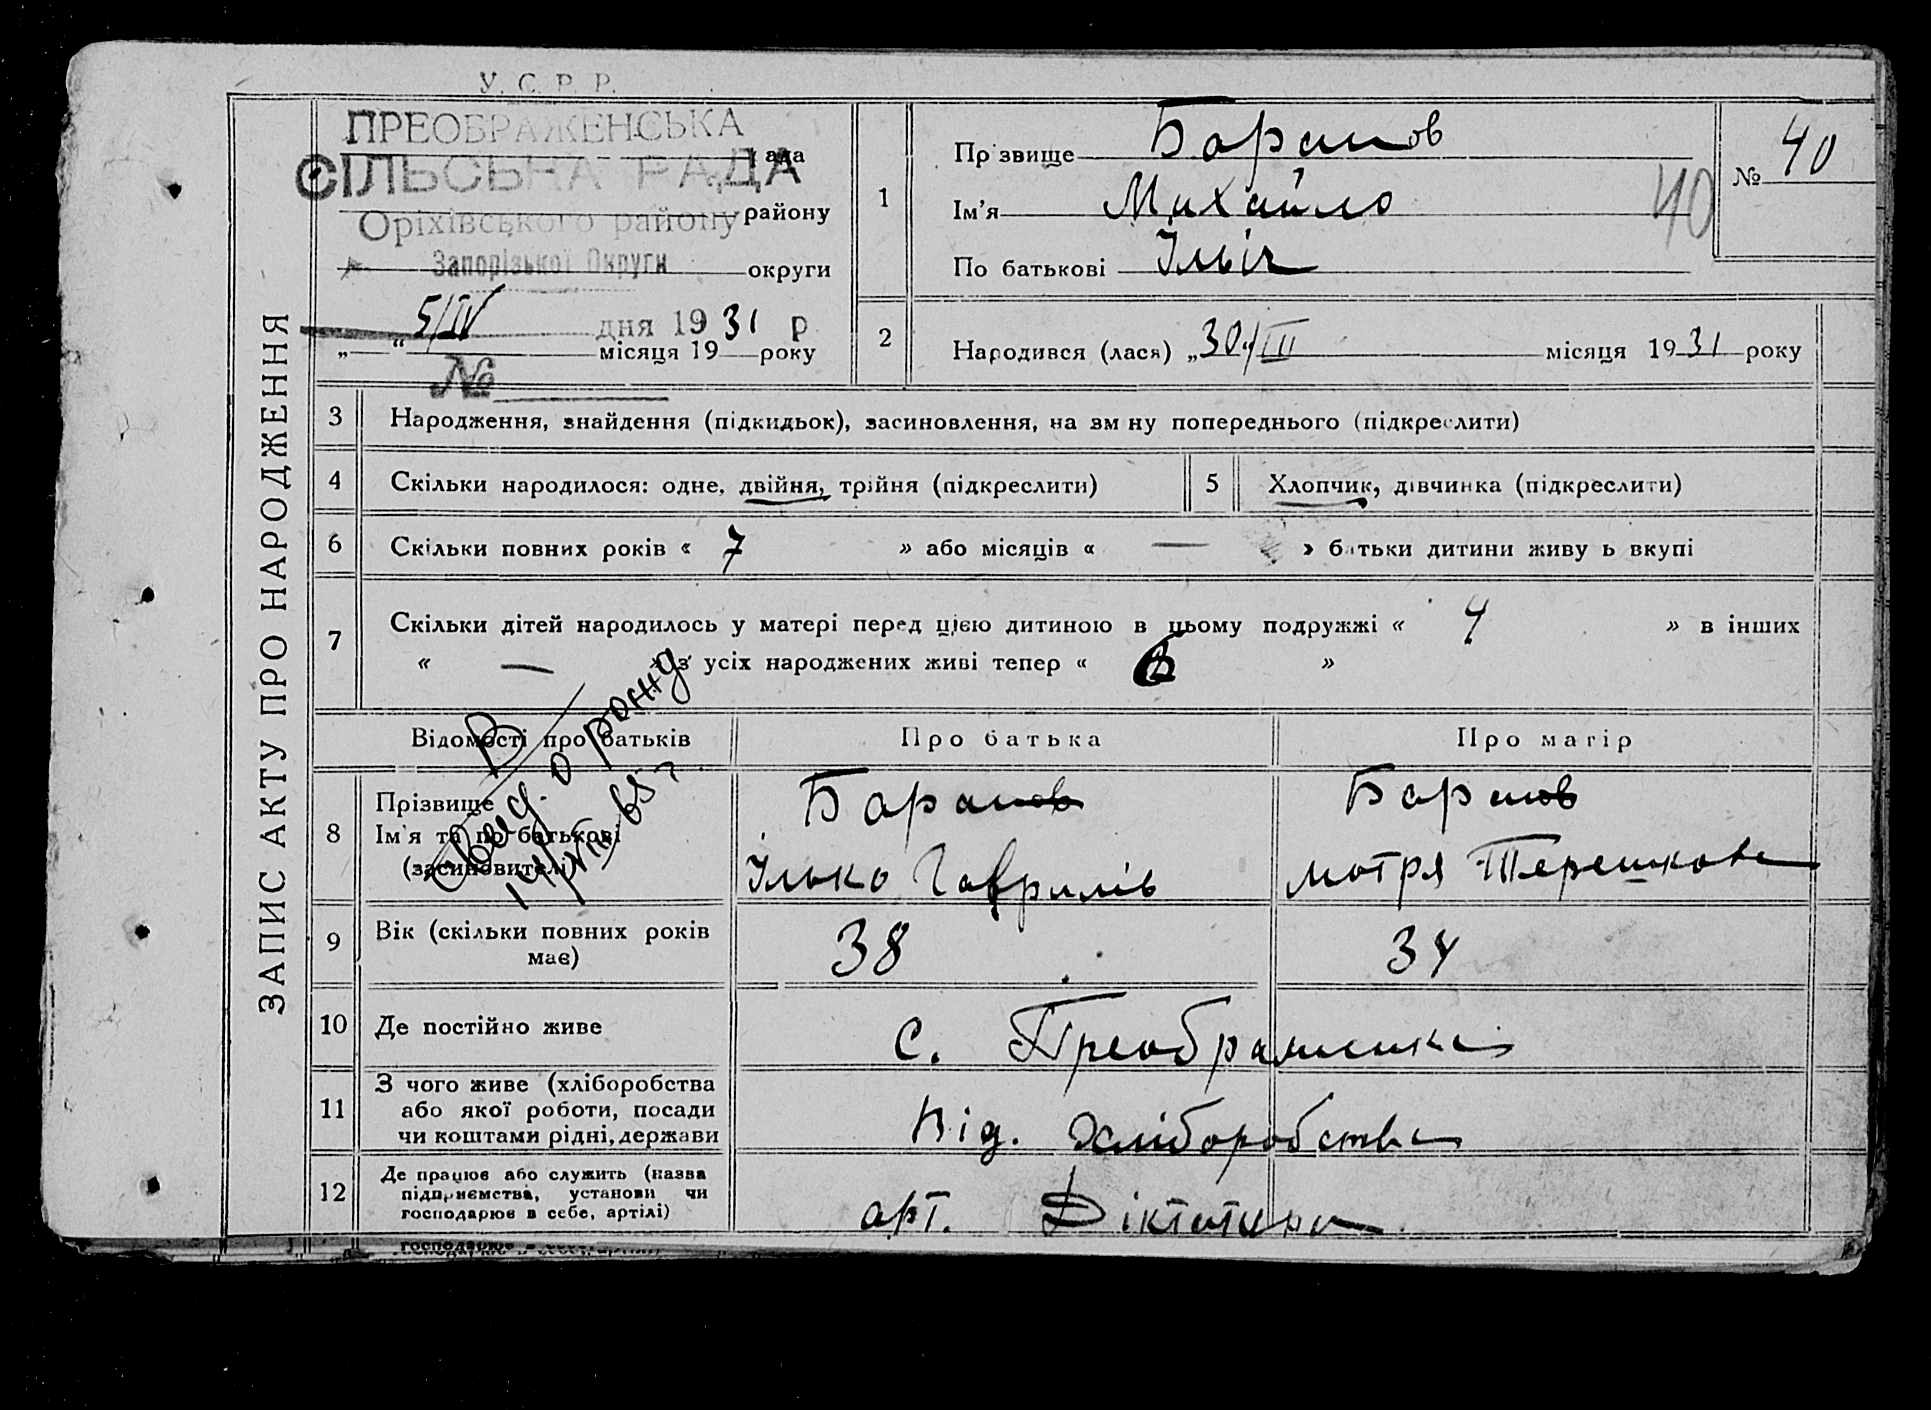 У. С. Р. Р.
ПРЕОБРАЖЕНСЬКА
СІЛЬСЬКА РАДА
рада
Оріхівського району району
Запорізької Округи округи
5/IV дня 1931 р
„—“ місяця 19 року
№
ЗАПИС АКТУ ПРО НАРОДЖЕННЯ
1
Прізвище Баранов
Ім’я Михайло
По батькові Ільіч
№ 40
40
2 Народився (лася) „30“/III місяця 1931 року
3 Народження, знайдення (підкидьок), засиновлення, на зміну попереднього (підкреслити)
4 Скільки народилося: одне, двійня, трійня (підкреслити)
5 Хлопчик, дівчинка (підкреслити)
6 Скільки повних років « 7 » або місяців « — » батьки дитини живуть вкупі
7 Скільки дітей народилось у матері перед цією дитиною в цьому подружжі « 4 » в інших
« — » з усіх народжених живі тепер « »
Відомості про батьків
Про батька
Про матір
В
Свид. о рожд
65 г.
8 Прізвище
Ім’я та по батькові
(засиновителі)
Баранов
Ілько Гаврилів
Баранов
Мотря Терешкова
9 Вік (скільки повних років має)
38
34
10 Де постійно живе
с. Преображенка
11 З чого живе (хліборобства
або якої роботи, посади
чи коштами рідні, держави
Від. хліборобства
12 Де працює або служить (назва
підприємства, установи чи
господарює в себе, артілі)
арт. Діктатура